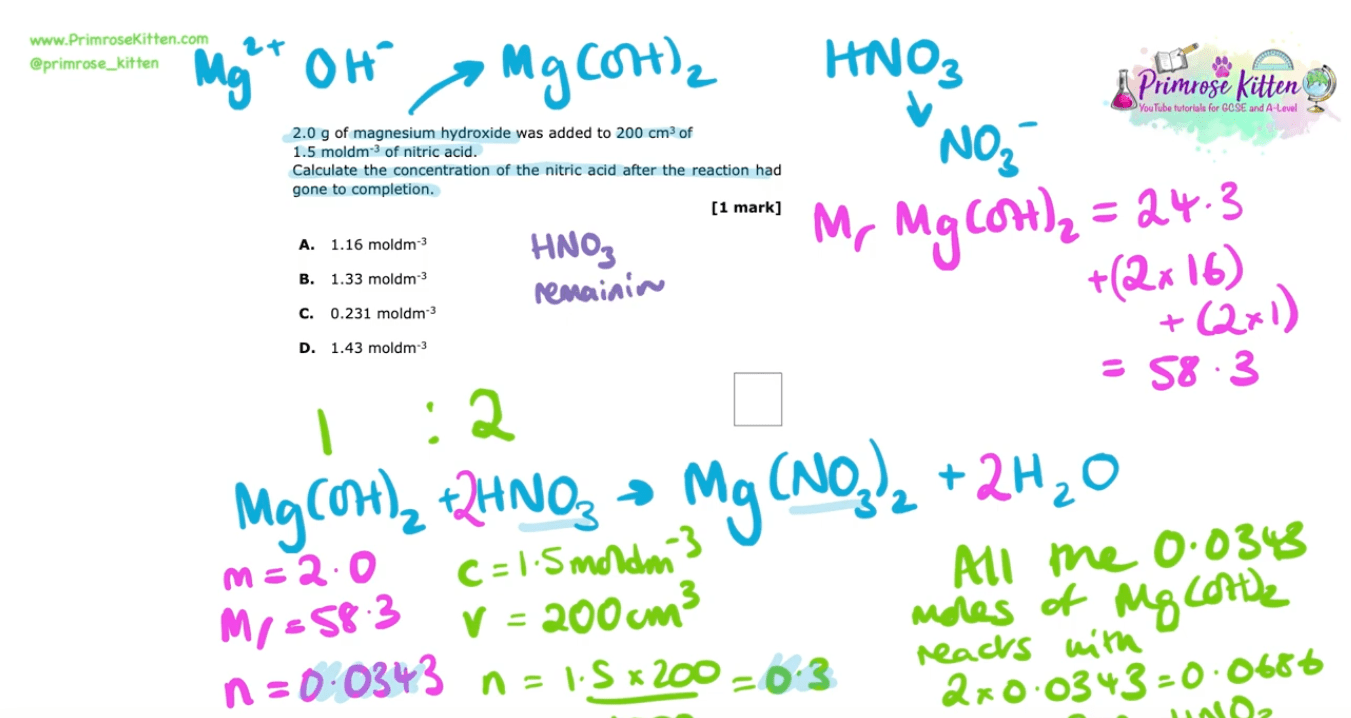 www.PrimroseKitten.com
@primrose_kitten
Mg²⁺ OH⁻ → Mg(OH)₂
HNO₃
↓
NO₃⁻
Primrose Kitten
YouTube tutorials for GCSE and A-Level
2.0 g of magnesium hydroxide was added to 200 cm³ of
1.5 moldm⁻³ of nitric acid.
Calculate the concentration of the nitric acid after the reaction had
gone to completion.
[1 mark]
A. 1.16 moldm⁻³
B. 1.33 moldm⁻³
C. 0.231 moldm⁻³
D. 1.43 moldm⁻³
HNO₃
remainin
Mr Mg(OH)₂ = 24.3
+(2×16)
+(2×1)
= 58.3
1 : 2
Mg(OH)₂ +2HNO₃ → Mg(NO₃)₂ + 2H₂O
m = 2.0
Mr = 58.3
n = 0.0343
c = 1.5 moldm⁻³
v = 200cm³
n = 1.5 × 200 = 0.3
All the 0.0343
moles of Mg(OH)₂
reacts with
2×0.0343 = 0.0686
HNO₃